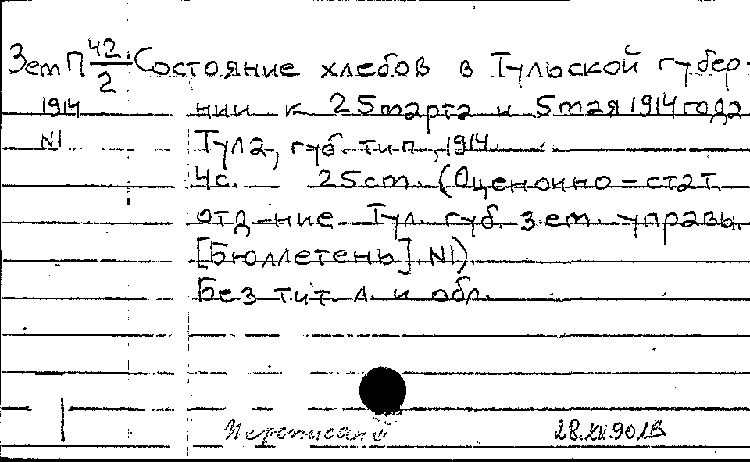 Зем П 42/2 Состояние хлебов в Тульской губер-
1914 нии к 25 марта и 5 мая 1914 года
N1 Тула, губ. тип., 1914
4с. 25 cm. (Оценочно-стат.
отд-ние Тул. губ. зем. управы.
[Бюллетень]. N1)
Без тит. л. и обл.
Переписан 28.XII.90